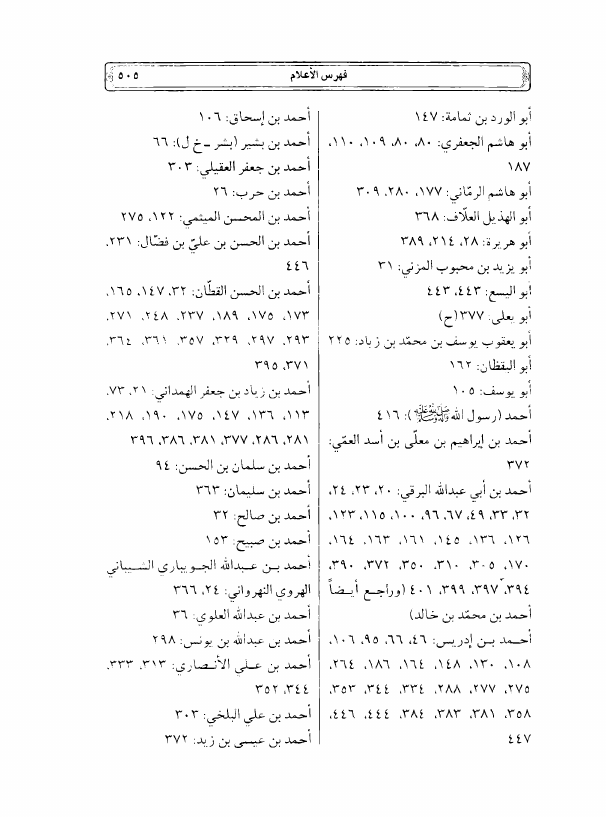 فهرس الأعلام
٥٠٥
أبو الورد بن ثمامة: ١٤٧
أبو هاشم الجعفري: ٨٠، ٨٠، ١٠٩، ١١٠،
١٨٧
أبو هاشم الرمّاني: ١٧٧، ٢٨٠، ٣٠٩
أبو الهذيل العلّاف: ٣٦٨
أبو هريرة: ٢٨، ٢١٤، ٣٨٩
أبو يزيد بن محبوب المزني: ٣١
أبو اليسع: ٤٤٣، ٤٤٣
أبو يعلى: ٣٧٧(ح)
أبو يعقوب يوسف بن محمّد بن زياد: ٢٢٥
أبو اليقظان: ١٦٢
أبو يوسف: ١٠٥
أحمد (رسول الله ﷺ): ٤١٦
أحمد بن إبراهيم بن معلّى بن أسد العمّي:
٣٧٢
أحمد بن أبي عبدالله البرقي: ٢٠، ٢٣، ٢٤،
٣٢، ٣٣، ٤٩، ٦٧، ٩٦، ١٠٠، ١١٥، ١٢٣،
١٢٦، ١٣٦، ١٤٥، ١٦١، ١٦٣، ١٦٤،
١٧٠، ٣٠٥، ٣١٠، ٣٥٠، ٣٧٢، ٣٩٠،
٣٩٤، ٣٩٧، ٣٩٩، ٤٠١ (وراجع أيضاً
أحمد بن محمّد بن خالد)
أحمد بن إدريس: ٤٦، ٦٦، ٩٥، ١٠٦،
١٠٨، ١٣٠، ١٤٨، ١٦٤، ١٨٦، ٢٦٤،
٢٧٥، ٢٧٧، ٢٨٨، ٣٣٤، ٣٤٤، ٣٥٣،
٣٥٨، ٣٨١، ٣٨٣، ٣٨٤، ٤٤٤، ٤٤٦،
٤٤٧
أحمد بن إسحاق: ١٠٦
أحمد بن بشير (بشر ـ خ ل): ٦٦
أحمد بن جعفر العقيلي: ٣٠٣
أحمد بن حرب: ٢٦
أحمد بن المحسن الميثمي: ١٢٢، ٢٧٥
أحمد بن الحسن بن عليّ بن فضّال: ٢٣١،
٤٤٦
أحمد بن الحسن القطّان: ٣٢، ١٤٧، ١٦٥،
١٧٣، ١٧٥، ١٨٩، ٢٣٧، ٢٤٨، ٢٧١،
٢٩٣، ٢٩٧، ٣٢٩، ٣٥٧، ٣٦١، ٣٦٤،
٣٧١، ٣٩٥
أحمد بن زياد بن جعفر الهمداني: ٢١، ٧٣،
١١٣، ١٣٦، ١٤٧، ١٧٥، ١٩٠، ٢١٨،
٢٨١، ٢٨٦، ٣٧٧، ٣٨١، ٣٨٦، ٣٩٦
أحمد بن سلمان بن الحسن: ٩٤
أحمد بن سليمان: ٣٦٣
أحمد بن صالح: ٣٢
أحمد بن صبيح: ١٥٣
أحمد بن عبدالله الجويباري الشيباني
الهروي النهرواني: ٢٤، ٣٦٦
أحمد بن عبدالله العلوي: ٣٦
أحمد بن عبدالله بن يونس: ٢٩٨
أحمد بن علي الأنصاري: ٣١٣، ٣٣٣،
٣٤٤، ٣٥٢
أحمد بن علي البلخي: ٣٠٣
أحمد بن عيسى بن زيد: ٣٧٢